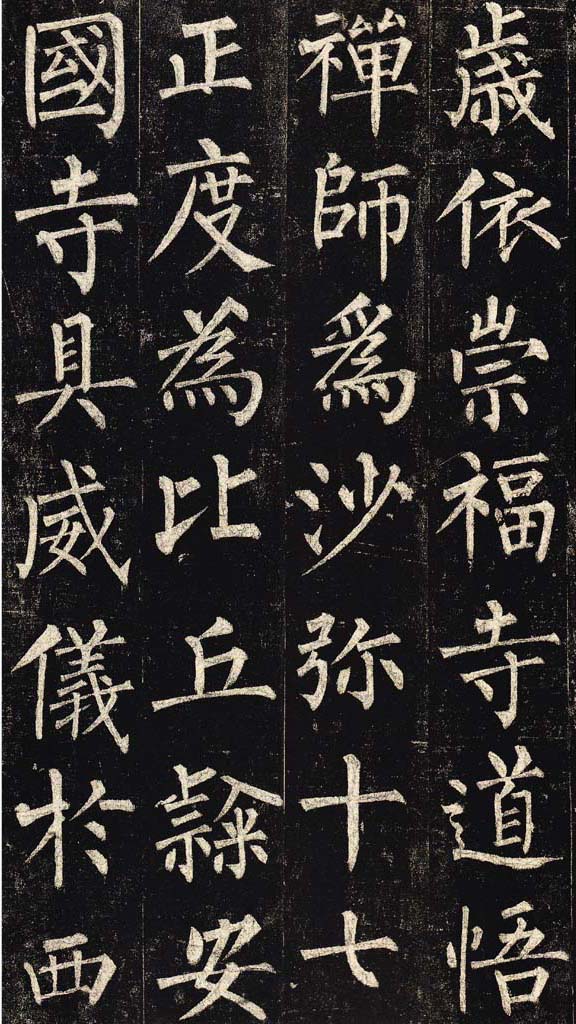 歲依崇福寺道悟
禪師為沙弥十七
正度為比丘隷安
國寺具威儀於西